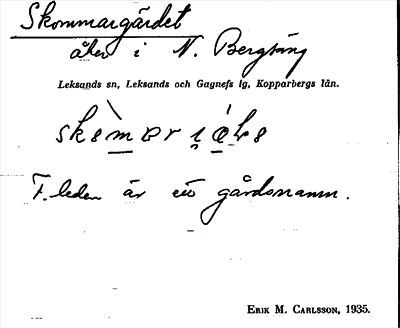 Skommargärdet
åker i N. Bergsäng
Leksands sn, Leksands och Gagnefs lg, Kopparbergs län.
F. leden är ett gårdsnamn.
ERIK M. CARLSSON, 1935.